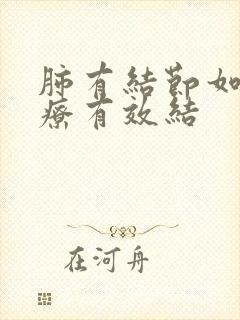 肺有結節如
療有效結
在河舟